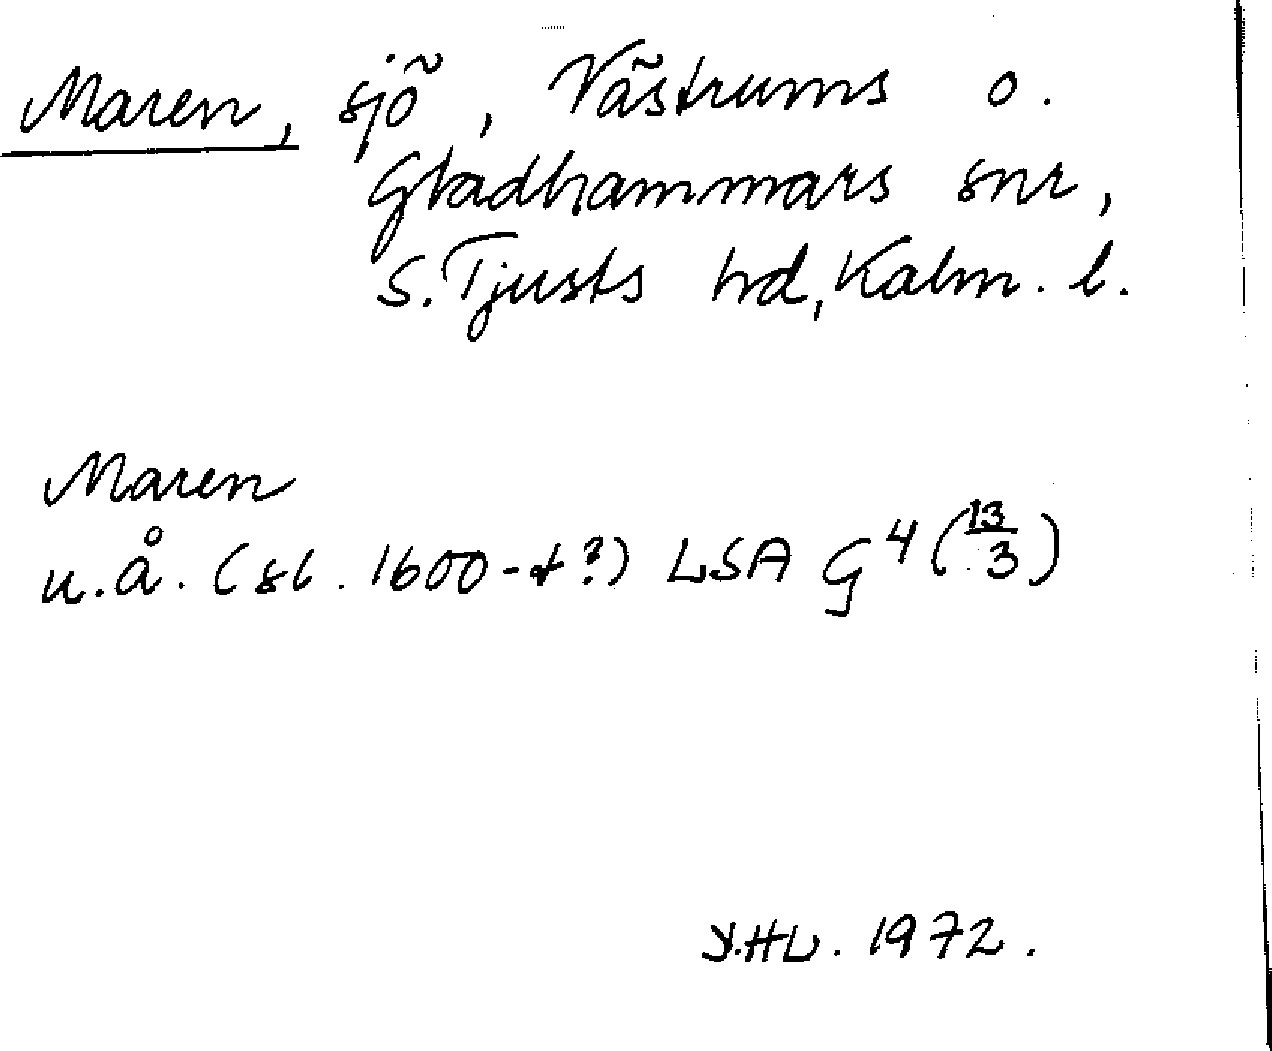 Maren, sjö, Västrums o.
Gladhammars snr,
S. Tjusts hd, Kalm. l.
Maren
u.å. (sl. 1600-t?) LSA G⁴ (13/3)
Y.HL. 1972.